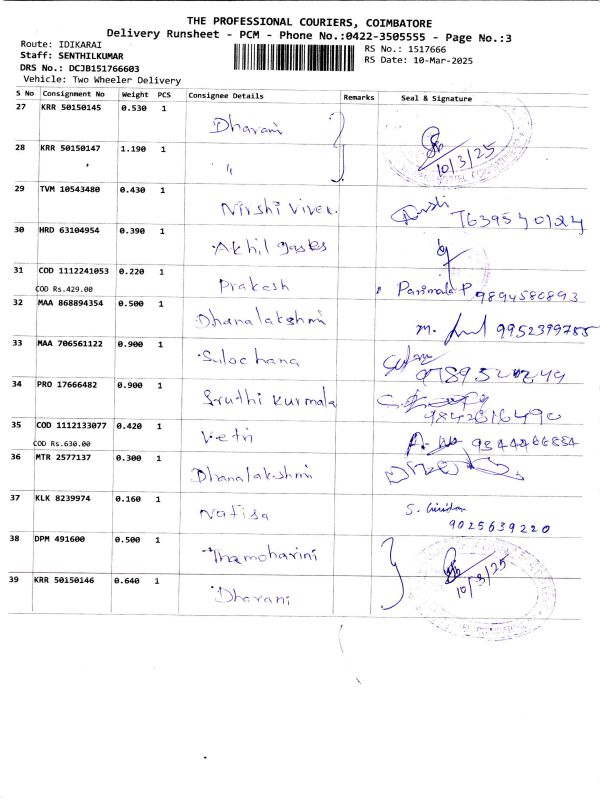 THE PROFESSIONAL COURIERS, COIMBATORE
Delivery Runsheet - PCM - Phone No.:0422-3505555 - Page No.:3
Route: IDIKARAI
RS No.: 1517666
Staff: SENTHILKUMAR
RS Date: 10-Mar-2025
DRS No.: DCJB151766603
Vehicle: Two Wheeler Delivery
S No Consignment No Weight PCS Consignee Details Remarks Seal & Signature
27 KRR 50150145 0.530 1 Dharani
28 KRR 50150147 1.190 1 " 10/3/25
29 TVM 10543480 0.430 1 Nirshi Vivek. 7639540124
30 HRD 63104954 0.390 1 Akhil
31 COD 1112241053 0.220 1 Prakesh Parimala P 9894580893
COD Rs.429.00
32 MAA 868894354 0.500 1 Dhanalakshmi m. 9952399785
33 MAA 706561122 0.900 1 Sulochana
34 PRO 17666482 0.900 1 Sruthi Kurmala 9842616490
35 COD 1112133077 0.420 1 Vetri 9344466884
COD Rs.630.00
36 MTR 2577137 0.300 1 Dhanalakshmi
37 KLK 8239974 0.160 1 Nafisa S. 9025639220
38 DPM 491600 0.500 1 Thamoharini
39 KRR 50150146 0.640 1 Dharani 10/3/25